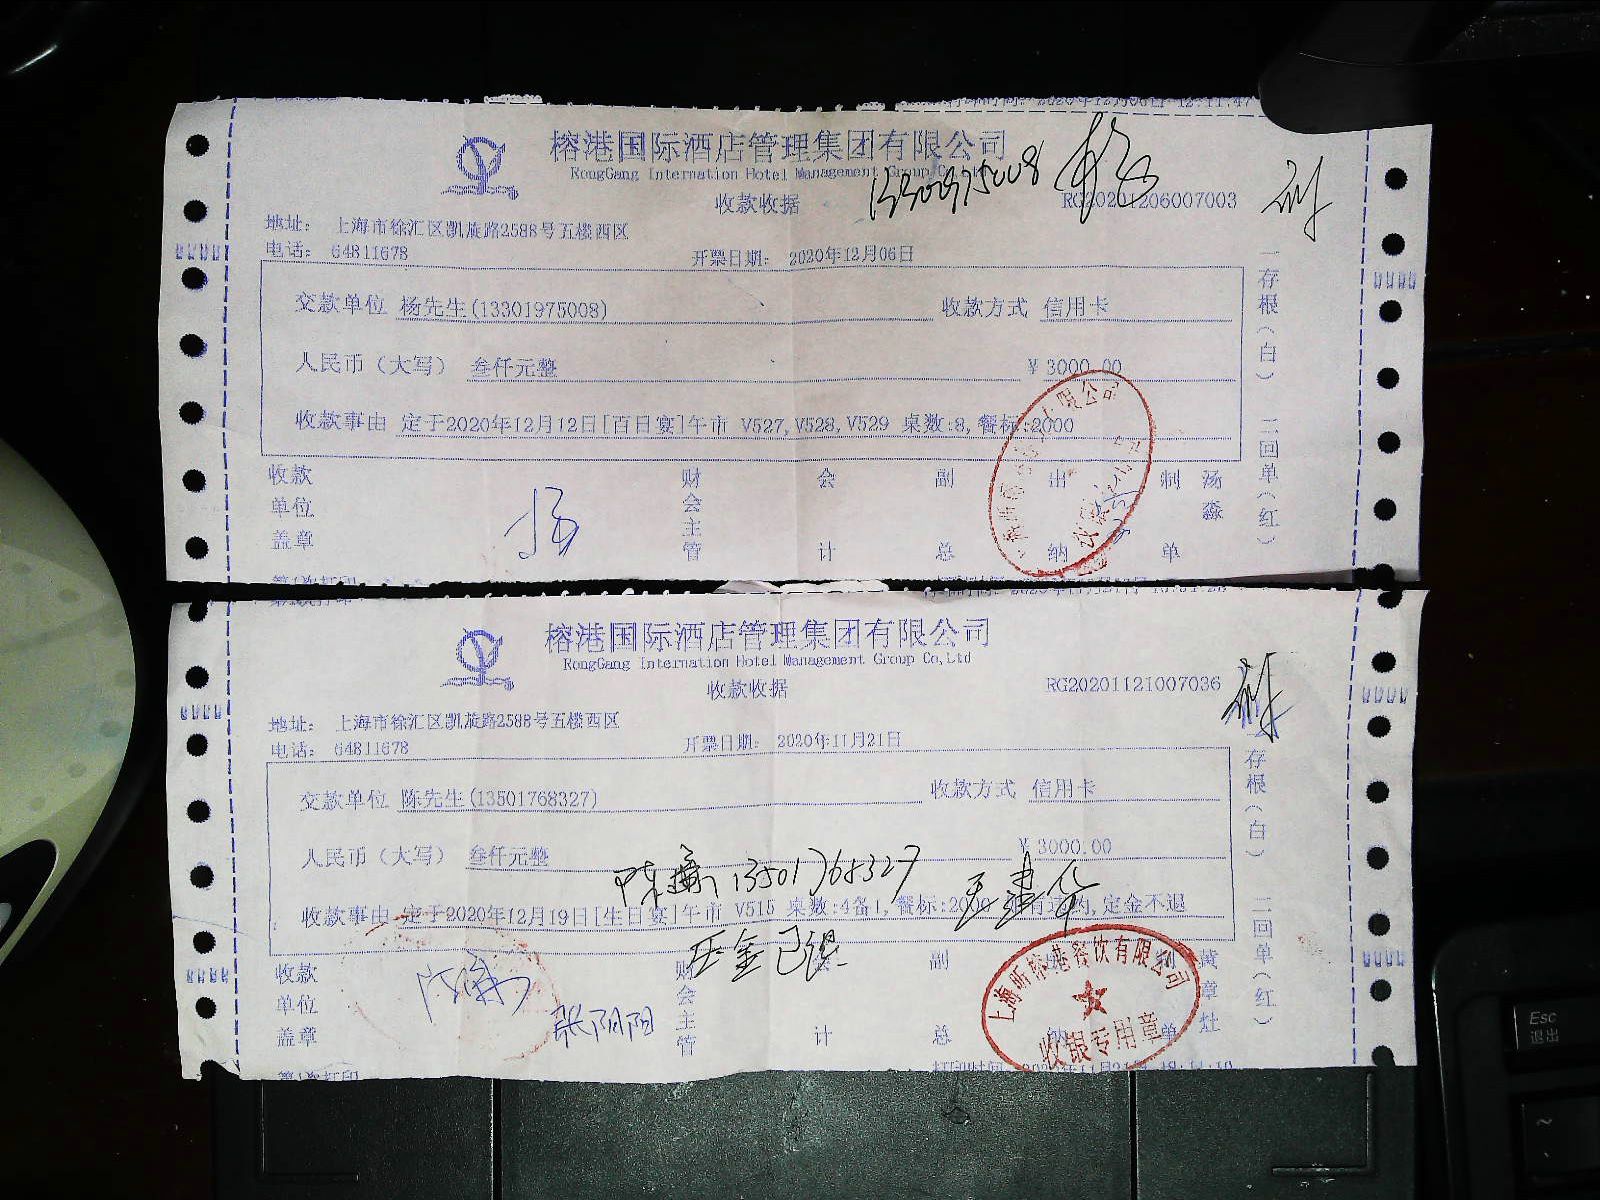 榕港国际酒店管理集团有限公司
RongGang Internation Hotel Management Group Co,Ltd
收款收据
13301975008 杨
RG20201206007003
地址： 上海市徐汇区凯旋路2588号五楼西区
电话： 64811678
开票日期： 2020年12月06日
交款单位 杨先生(13301975008) 收款方式 信用卡
人民币（大写） 叁仟元整 ¥ 3000.00
收款事由 定于2020年12月12日[百日宴]午市 V527,V528,V529 桌数:8,餐标:2000
收款单位盖章 杨 财会主管 会计 副总 出纳 制单 汤淼
一存根（白） 二回单（红）
榕港国际酒店管理集团有限公司
RongGang Internation Hotel Management Group Co,Ltd
收款收据
RG20201121007036
地址： 上海市徐汇区凯旋路2588号五楼西区
电话： 64811678
开票日期： 2020年11月21日
交款单位 陈先生(13501768327) 收款方式 信用卡
人民币（大写） 叁仟元整 ¥ 3000.00
13501768327 王建华
收款事由 定于2020年12月19日[生日宴]午市 V515 桌数:4备1,餐标:2000 如有违约,定金不退
压金已退
收款单位盖章 张阳阳 财会主管 会计 副总 出纳 制单 黄章灶
上海昕榕港餐饮有限公司
收银专用章
一存根（白） 二回单（红）